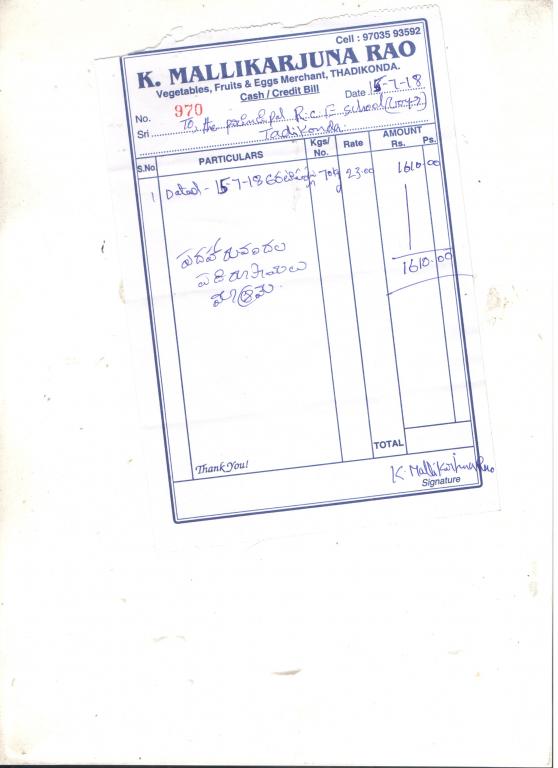 Cell : 97035 93592
K. MALLIKARJUNA RAO
Vegetables, Fruits & Eggs Merchant, THADIKONDA.
Cash / Credit Bill
No. 970
Date 15-7-18
Sri To, the principal R.C.E School (Boys)
Tadikonda
S.No PARTICULARS Kgs/No. Rate AMOUNT Rs. Ps.
1 Dated - 15-7-18 70kg 23.00 1610.00
పదహారువందల
పది రూపాయలు
మాత్రమే.
1610.00
TOTAL
Thank You!
K. Mallikarjuna Rao
Signature